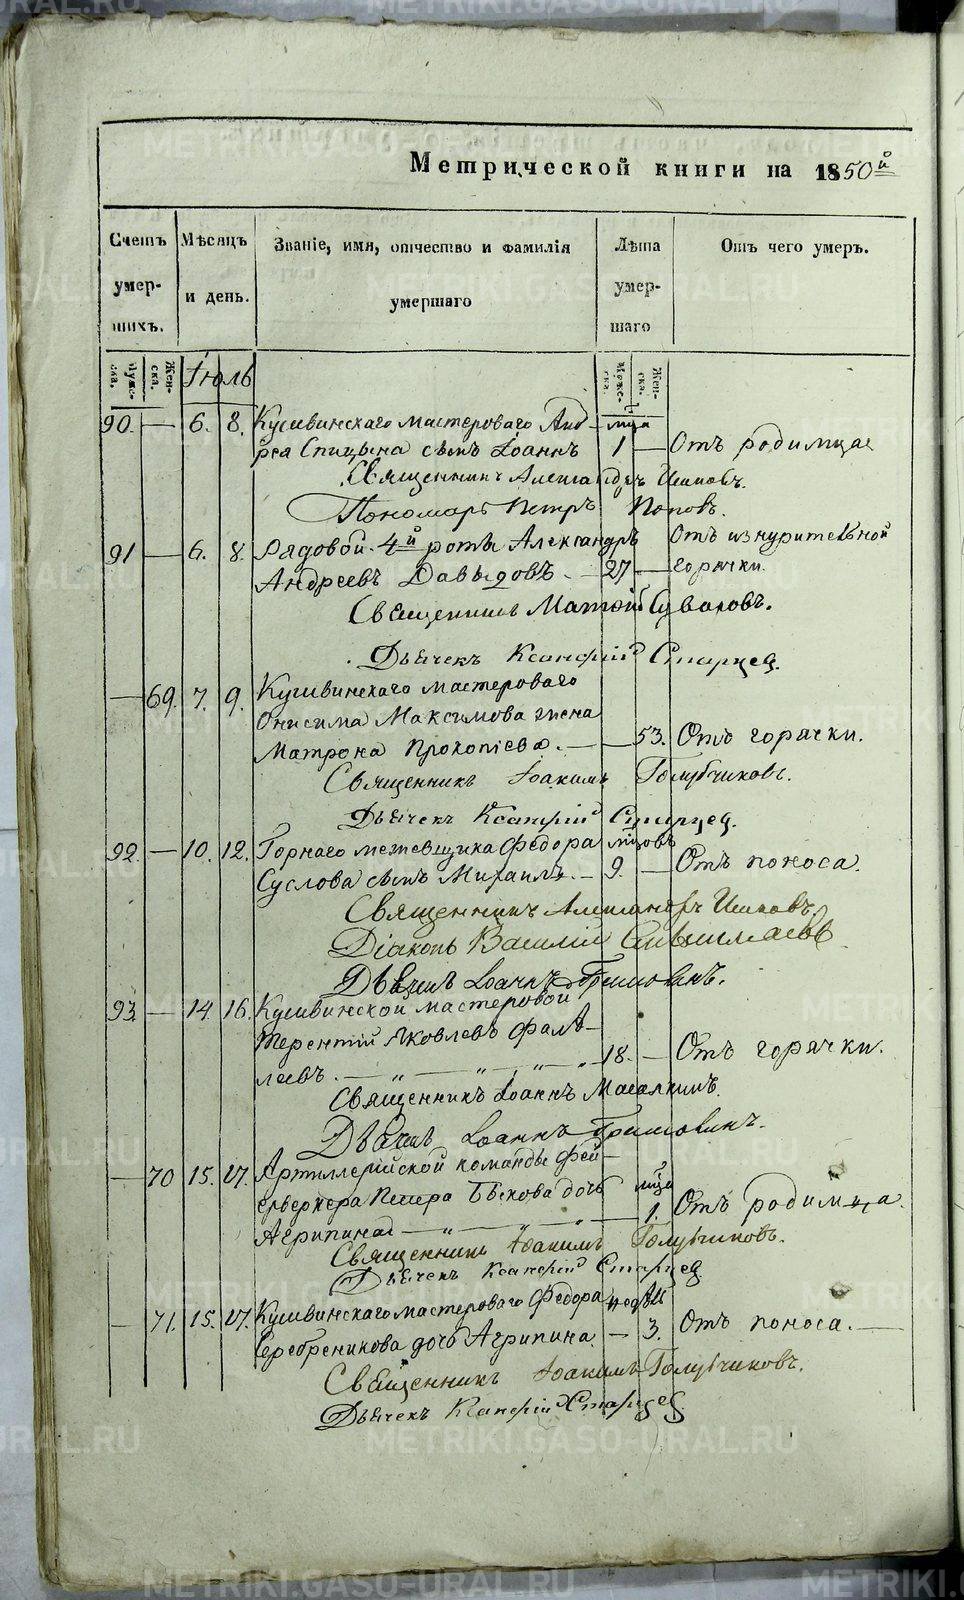 Метрической книги на 1850й
Счетъ умер-шихъ.
Мѣсяцъ и день.
Званіе, имя, отчество и фамилія умершаго
Лѣта умер-шаго
Отъ чего умеръ.
Мужеска.
Женска.
Іюль
Мужеска.
Женска.
90. — 6. 8. Кушвинскаго мастероваго Анд- мца
рея Спицына сынъ Іоаннъ 1 — Отъ родимца
Священникъ Александръ
Пономарь Петръ Поповъ.
91 — 6. 8. Рядовой 4й роты Александръ Отъ изнурительной
Андреевъ Давыдовъ. — 27 — горячки.
Священникъ Матѳій Суваковъ.
Дьячекъ Ксанфій Старцев.
— 69. 7. 9. Кушвинскаго мастероваго
Онисима Максимова жена
Матрона Прокопіева. — — 53. Отъ горячки.
Священникъ Іоакимъ Голубчиковъ.
Дьячекъ Ксанфій Старцев.
92. — 10. 12. Горнаго межевщика Федора мцовъ
Суслова сынъ Михаилъ. — 9. — Отъ поноса.
Священникъ Александръ
Діаконъ Василій
Дьячекъ Іоаннъ
93. — 14. 16. Кушвинской мастеровой
Терентій Яковлевъ Фалѣ-
леевъ. — „ — „ — „ — „ 18. — Отъ горячки.
Священникъ Іоаннъ
Дьячекъ Іоаннъ
— 70 15. 17. Артиллерійской команды фей-
ерверкера Петра Бѣкова дочь мца
Агрипина — „ — „ — „ — 1. Отъ родимца.
Священникъ Іоакимъ Голубчиковъ.
Дьячекъ Ксанфій Старцев
— 71. 15. 17. Кушвинскаго мастероваго Федора недѣли
Серебреникова дочь Агрипина — 3. Отъ поноса. —
Священникъ Іоакимъ Голубчиковъ.
Дьячекъ Ксанфій Старцев
METRIKI.GASO-URAL.RU